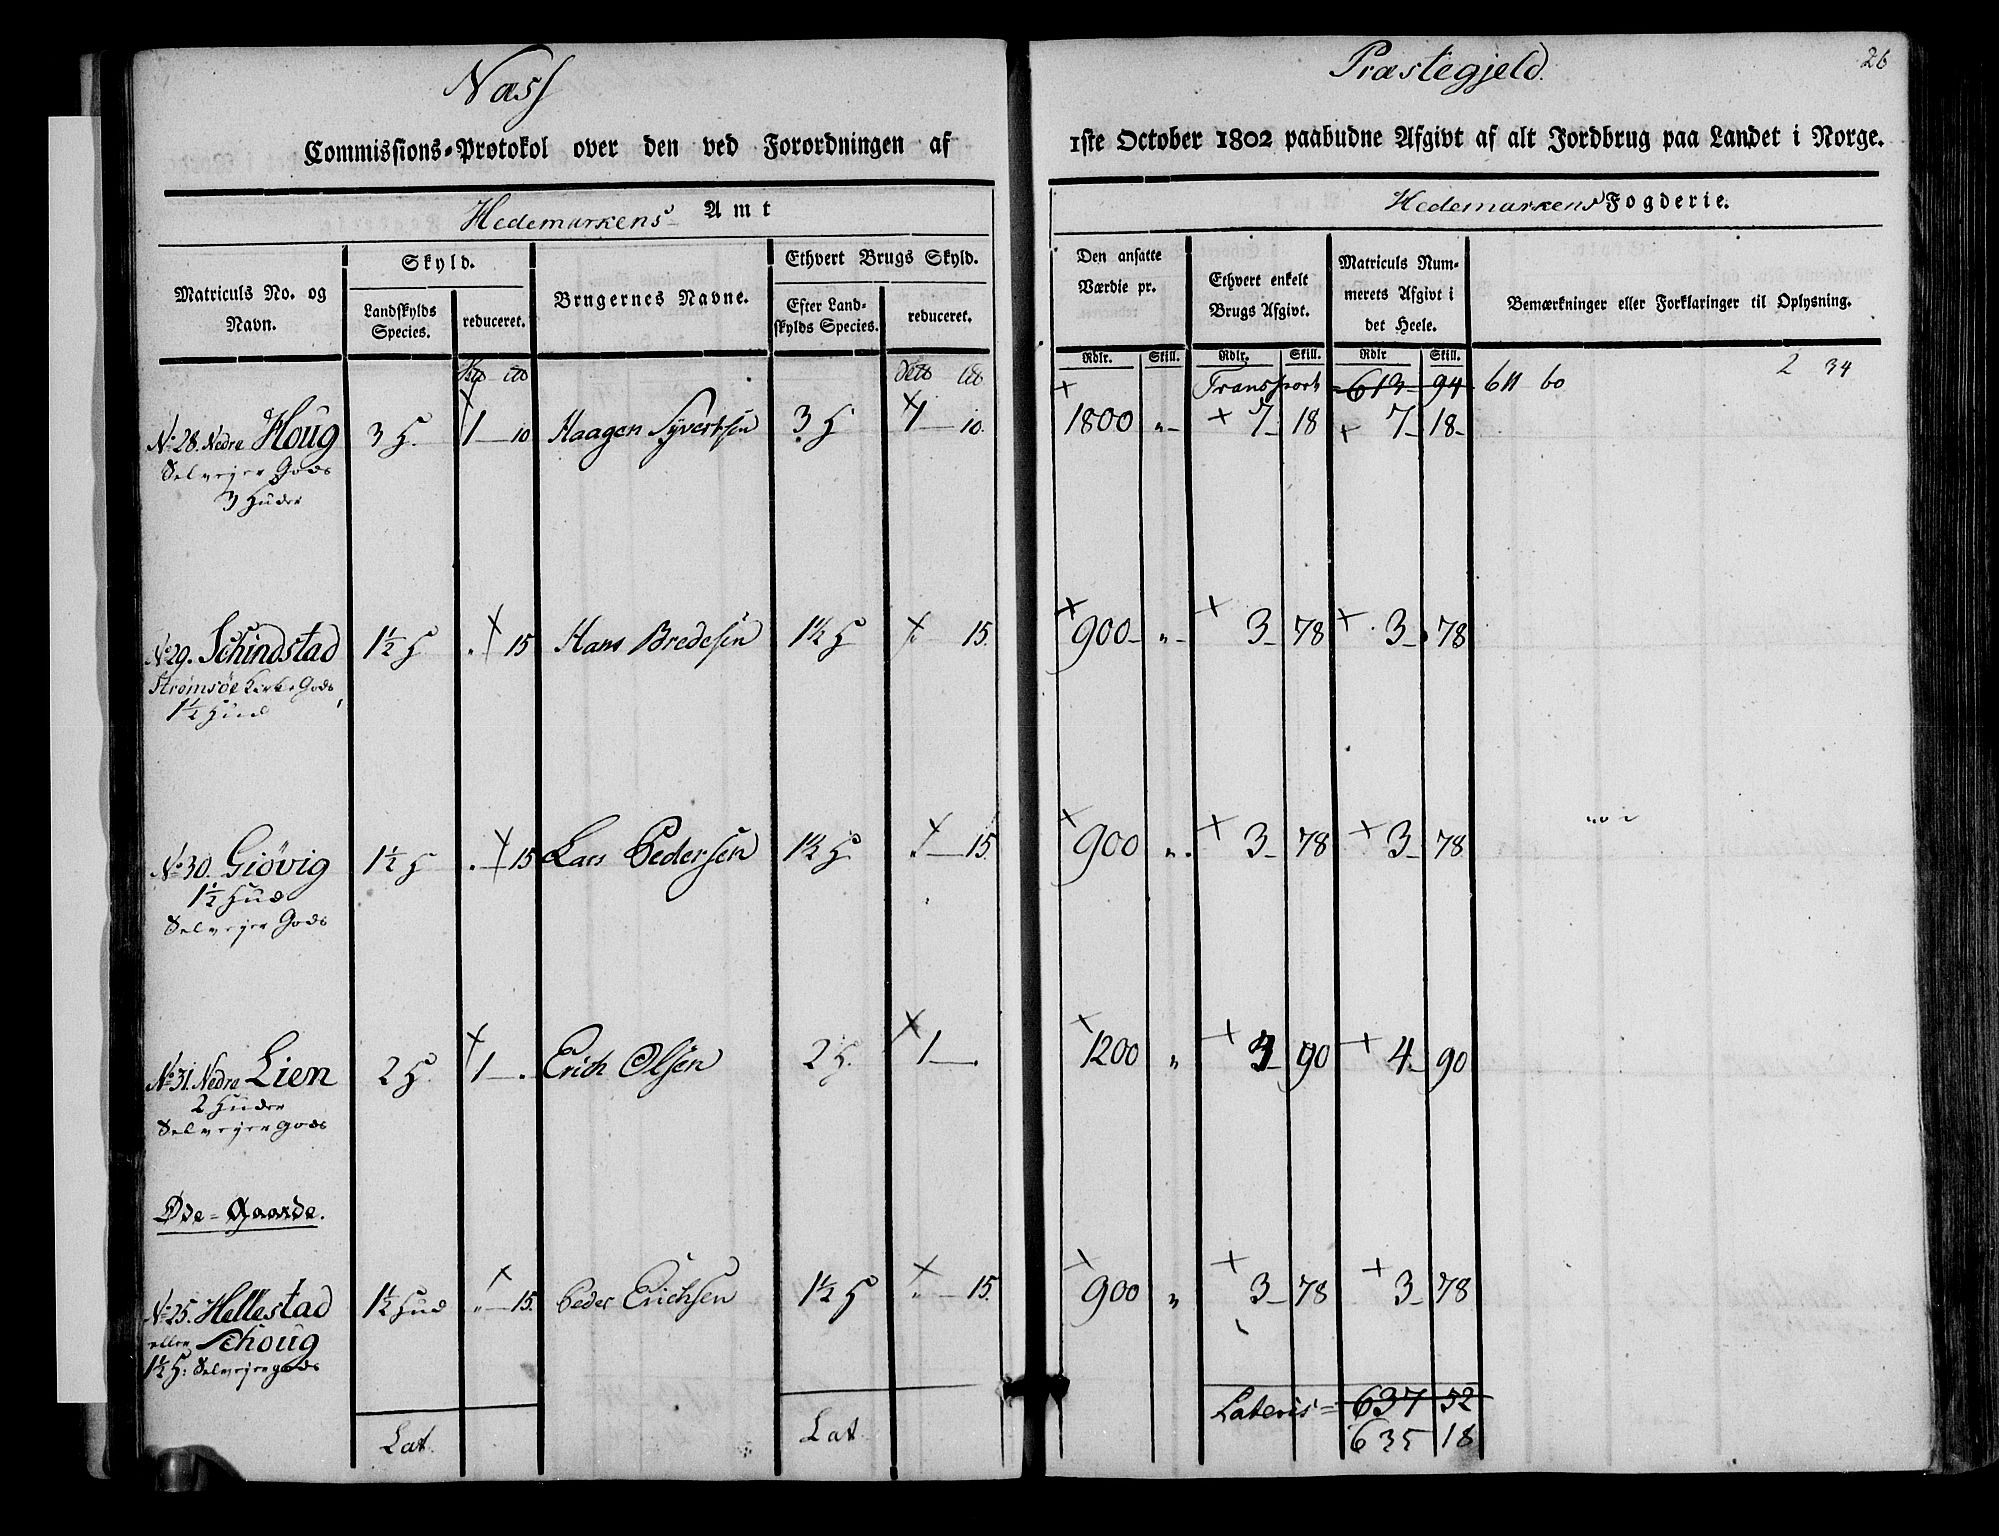 Næss
Præstegjeld.
26
Commissions-Protokol over den ved Forordningen af
1ste October 1802 paabudne Afgivt af alt Jordbrug paa Landet i Norge.
Hedemarkens Amt
Hedemarkens Fogderie.
Matriculs No. og Navn.
Skyld.
Landskylds Species.
reduceret.
Brugernes Navne.
Ethvert Brugs Skyld.
Efter Landskylds Species.
reduceret.
Den ansatte Værdie pr.
Ethvert enkelt Brugs Afgivt.
Matriculs Nummerets Afgivt i det Heele.
Bemærkninger eller Forklaringer til Oplysning.
Rdlr. Skill. Rdlr. Skill. Rdlr Skill.
Transport 613 94 611 60 2 34
No 28. Nedre Houg 3 H. 1 — 10 Haagen Syvertsen 3 H 1 — 10. 1800 „ 7 18 7 18
Selvejer Gods
3 Huder
No 29. Schindstad 1½ H 15 Hans Bredesen 1½ H 15. 900 „ 3 78 3 78
Strømsøe Kirke Gods
1½ Hud
No 30. Giövig 1½ H 15 Lars Pedersen 1½ H 15. 900 „ 3 78 3 78
1½ Hud
Selvejer Gods
No 31. Nedre Lien 2 H. 1 — . Erich Olsen 2 H. 1 — . 1200 „ 4 90 4 90
2 Huder
Selvejer gods
Øde-Gaarde.
No 25. Hellestad 1½ Hud „ — 15. Peder Erichsen 1½ H „ — 15. 900 „ 3 78 3 78
eller Schoug
1½ H: Selvejergods
Lat. Lat. Lateris = 637 52
635 18